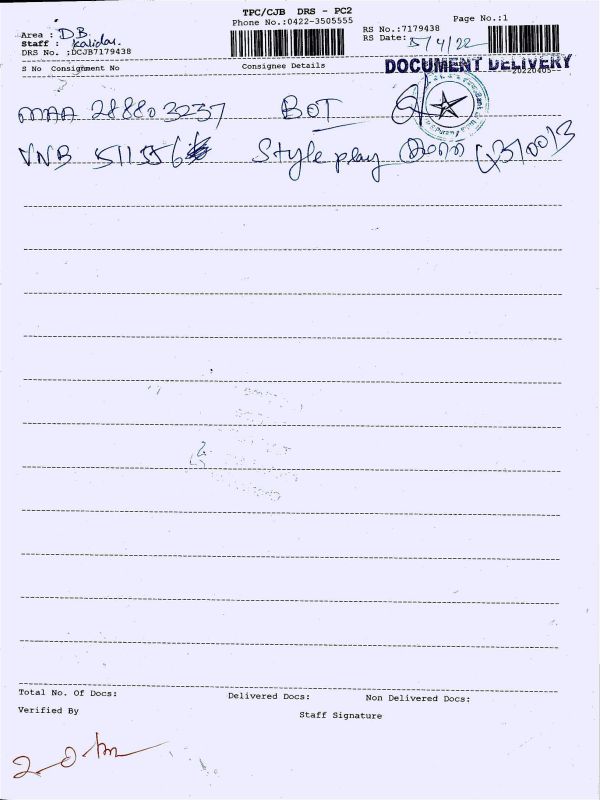 TPC/CJB DRS - PC2
Phone No.:0422-3505555
Page No.:1
Area : D.B.
Staff : Kalidas.
DRS No. :DCJB7179438
RS No.:7179438
RS Date: 5/4/22
20220405
DOCUMENT DELIVERY
S No Consignment No Consignee Details
MAA 288803237 BOT
VNB 511556 Style play
Total No. Of Docs: Delivered Docs: Non Delivered Docs:
Verified By Staff Signature